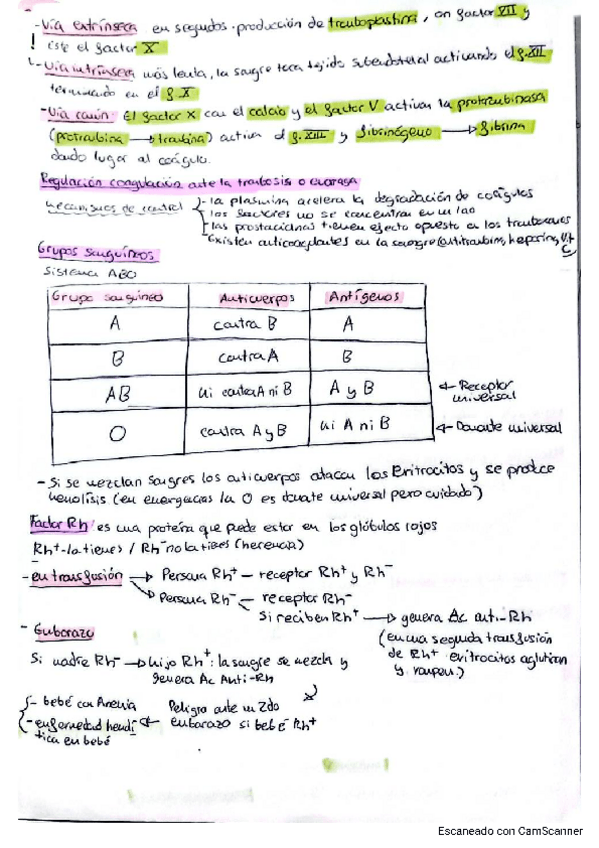 -Vía extrínseca en segundos. producción de tromboplastina, con factor VII y
! éste el factor X
-Vía intrínseca más lenta, la sangre toca tejido subendotelial activando el f.XII
terminando en el f.X
-Vía común: El factor X con el calcio y el factor V activan la protrombinasa
(protrombina → trombina) activa el f.XIII y fibrinógeno → fibrina
dando lugar al coágulo.
Regulación coagulación ante la trombosis o
mecanismos de control - la plasmina acelera la degradación de coágulos
los factores no se concentran en un lao
- las prostaciclinas tienen efecto opuesto en los tromboxanos
Existen anticoagulantes en la sangre (antitrombina, heparina, Vit C
Grupos sanguíneos
Sistema ABO
Grupo sanguíneo Anticuerpos Antígenos
A contra B A
B contra A B
AB ni contra A ni B A y B ← Receptor universal
O contra A y B ni A ni B ← Donante universal
- Si se mezclan sangres los anticuerpos atacan los Eritrocitos y se produce
hemolísis (en emergencias la O es donante universal pero cuidado)
Factor Rh es una proteína que puede estar en los glóbulos rojos
Rh+ - la tienes / Rh- no la tienes (herencia)
- en transfusión → Persona Rh+ - receptor Rh+ y Rh-
→ Persona Rh- - receptor Rh-
Si reciben Rh+ → genera Ac anti-Rh
(en una segunda transfusión
de Rh+ eritrocitos aglutinan
y rompen.)
- Embarazo
Si madre Rh- → hijo Rh+: la sangre se mezcla y
genera Ac Anti-Rh
Peligro ante un 2do
embarazo si bebé Rh+
- bebé con Anemia
- enfermedad hemolí-
tica en bebé
Escaneado con CamScanner